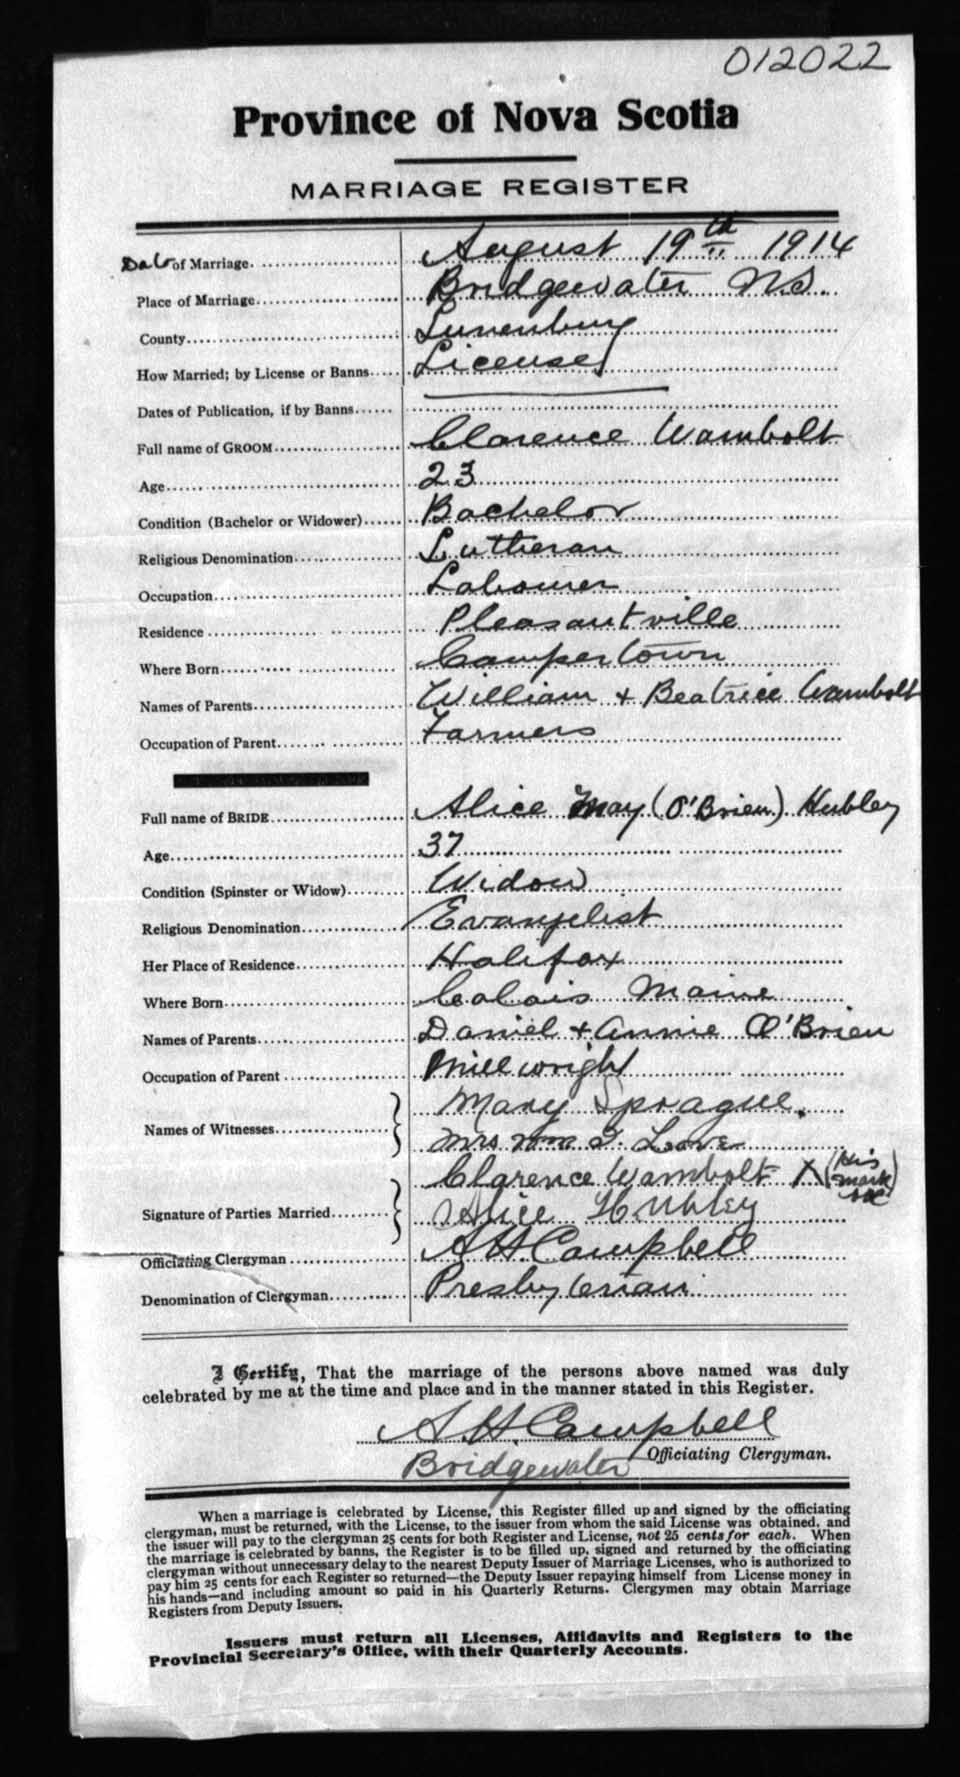 012022
Province of Nova Scotia
MARRIAGE REGISTER
Date of Marriage. August 19th 1914
Place of Marriage Bridgewater N.S.
County Lunenburg
How Married; by License or Banns License
Dates of Publication, if by Banns
Full name of GROOM Clarence Wambolt
Age 23
Condition (Bachelor or Widower) Bachelor
Religious Denomination Lutheran
Occupation Labourer
Residence Pleasantville
Where Born Campertown
Names of Parents William + Beatrice Wambolt
Occupation of Parent Farmers
Full name of BRIDE Alice May (O'Brien) Hubley
Age 37
Condition (Spinster or Widow) Widow
Religious Denomination Evangelist
Her Place of Residence Halifax
Where Born Calais Maine
Names of Parents Daniel + Annie O'Brien
Occupation of Parent Millwright
Names of Witnesses Mary Sprague.
Mrs. Wm. T. Love
Signature of Parties Married Clarence Wambolt X (His mark
Alice Hubley
Officiating Clergyman A. H. Campbell
Denomination of Clergyman Presbyterian
I Certify, That the marriage of the persons above named was duly
celebrated by me at the time and place and in the manner stated in this Register.
A. H. Campbell
Bridgewater Officiating Clergyman.
When a marriage is celebrated by License, this Register filled up and signed by the officiating
clergyman, must be returned, with the License, to the issuer from whom the said License was obtained, and
the issuer will pay to the clergyman 25 cents for both Register and License, not 25 cents for each. When
the marriage is celebrated by banns, the Register is to be filled up, signed and returned by the officiating
clergyman without unnecessary delay to the nearest Deputy Issuer of Marriage Licenses, who is authorized to
pay him 25 cents for each Register so returned—the Deputy Issuer repaying himself from License money in
his hands—and including amount so paid in his Quarterly Returns. Clergymen may obtain Marriage
Registers from Deputy Issuers.
Issuers must return all Licenses, Affidavits and Registers to the
Provincial Secretary's Office, with their Quarterly Accounts.